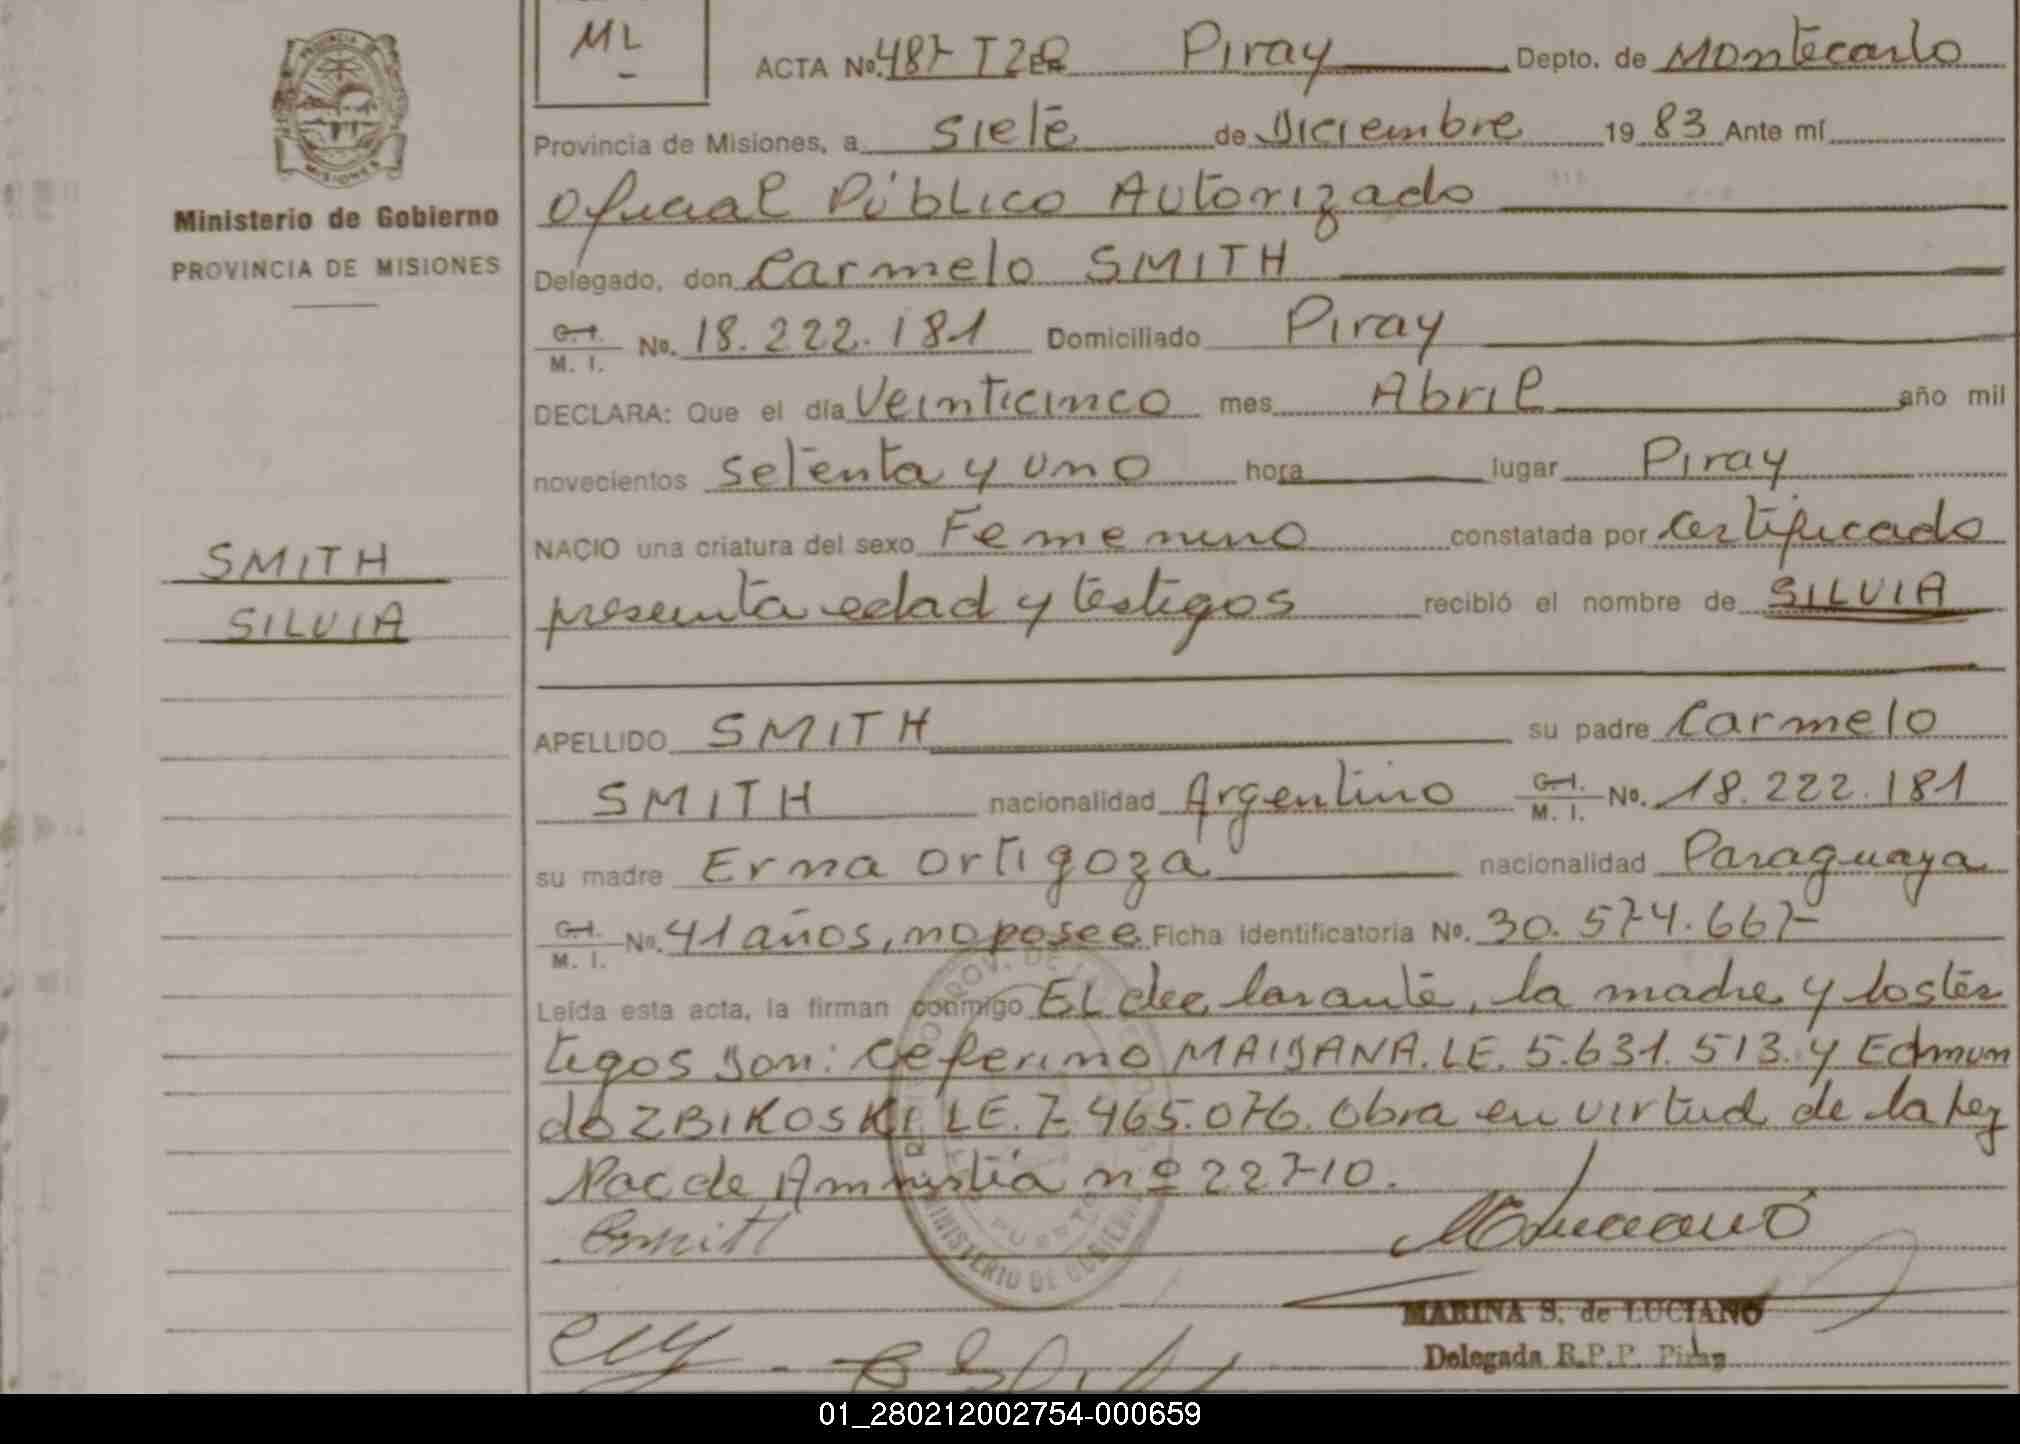 ML
ACTA Nº. 487 T2ER Piray Depto. de Montecarlo
Provincia de Misiones, a siete de Diciembre 1983 Ante mí
Oficial Público Autorizado
Delegado, don Carmelo SMITH
C.I. M. I. Nº. 18.222.181 Domiciliado Piray
DECLARA: Que el día Veinticinco mes Abril año mil
novecientos setenta y uno hora lugar Piray
NACIO una criatura del sexo Femenino constatada por Certificado
presunta edad y testigos recibió el nombre de SILVIA
APELLIDO SMITH su padre Carmelo
SMITH nacionalidad Argentino C.I. M. I. Nº. 18.222.181
su madre Erma Ortigoza nacionalidad Paraguaya
C.I. M. I. Nº. 41 años, no posee. Ficha identificatoria Nº. 30.574.667
Leída esta acta, la firman conmigo El declarante, la madre y los tes
tigos Don: Ceferino MAIDANA. LE. 5.631.513. y Edmun
do ZBIKOSKI LE. 7.465.076. Obra en virtud de la Ley
Nac de Amnistía nº 22710.
CSmith
MARINA S. de LUCIANO
Delegada R.P.P. Piray
PROVINCIA DE MISIONES
Ministerio de Gobierno
PROVINCIA DE MISIONES
SMITH
SILVIA
PROV. DE
PUERTO
MINISTERIO DE GOBIERNO
01_280212002754-000659